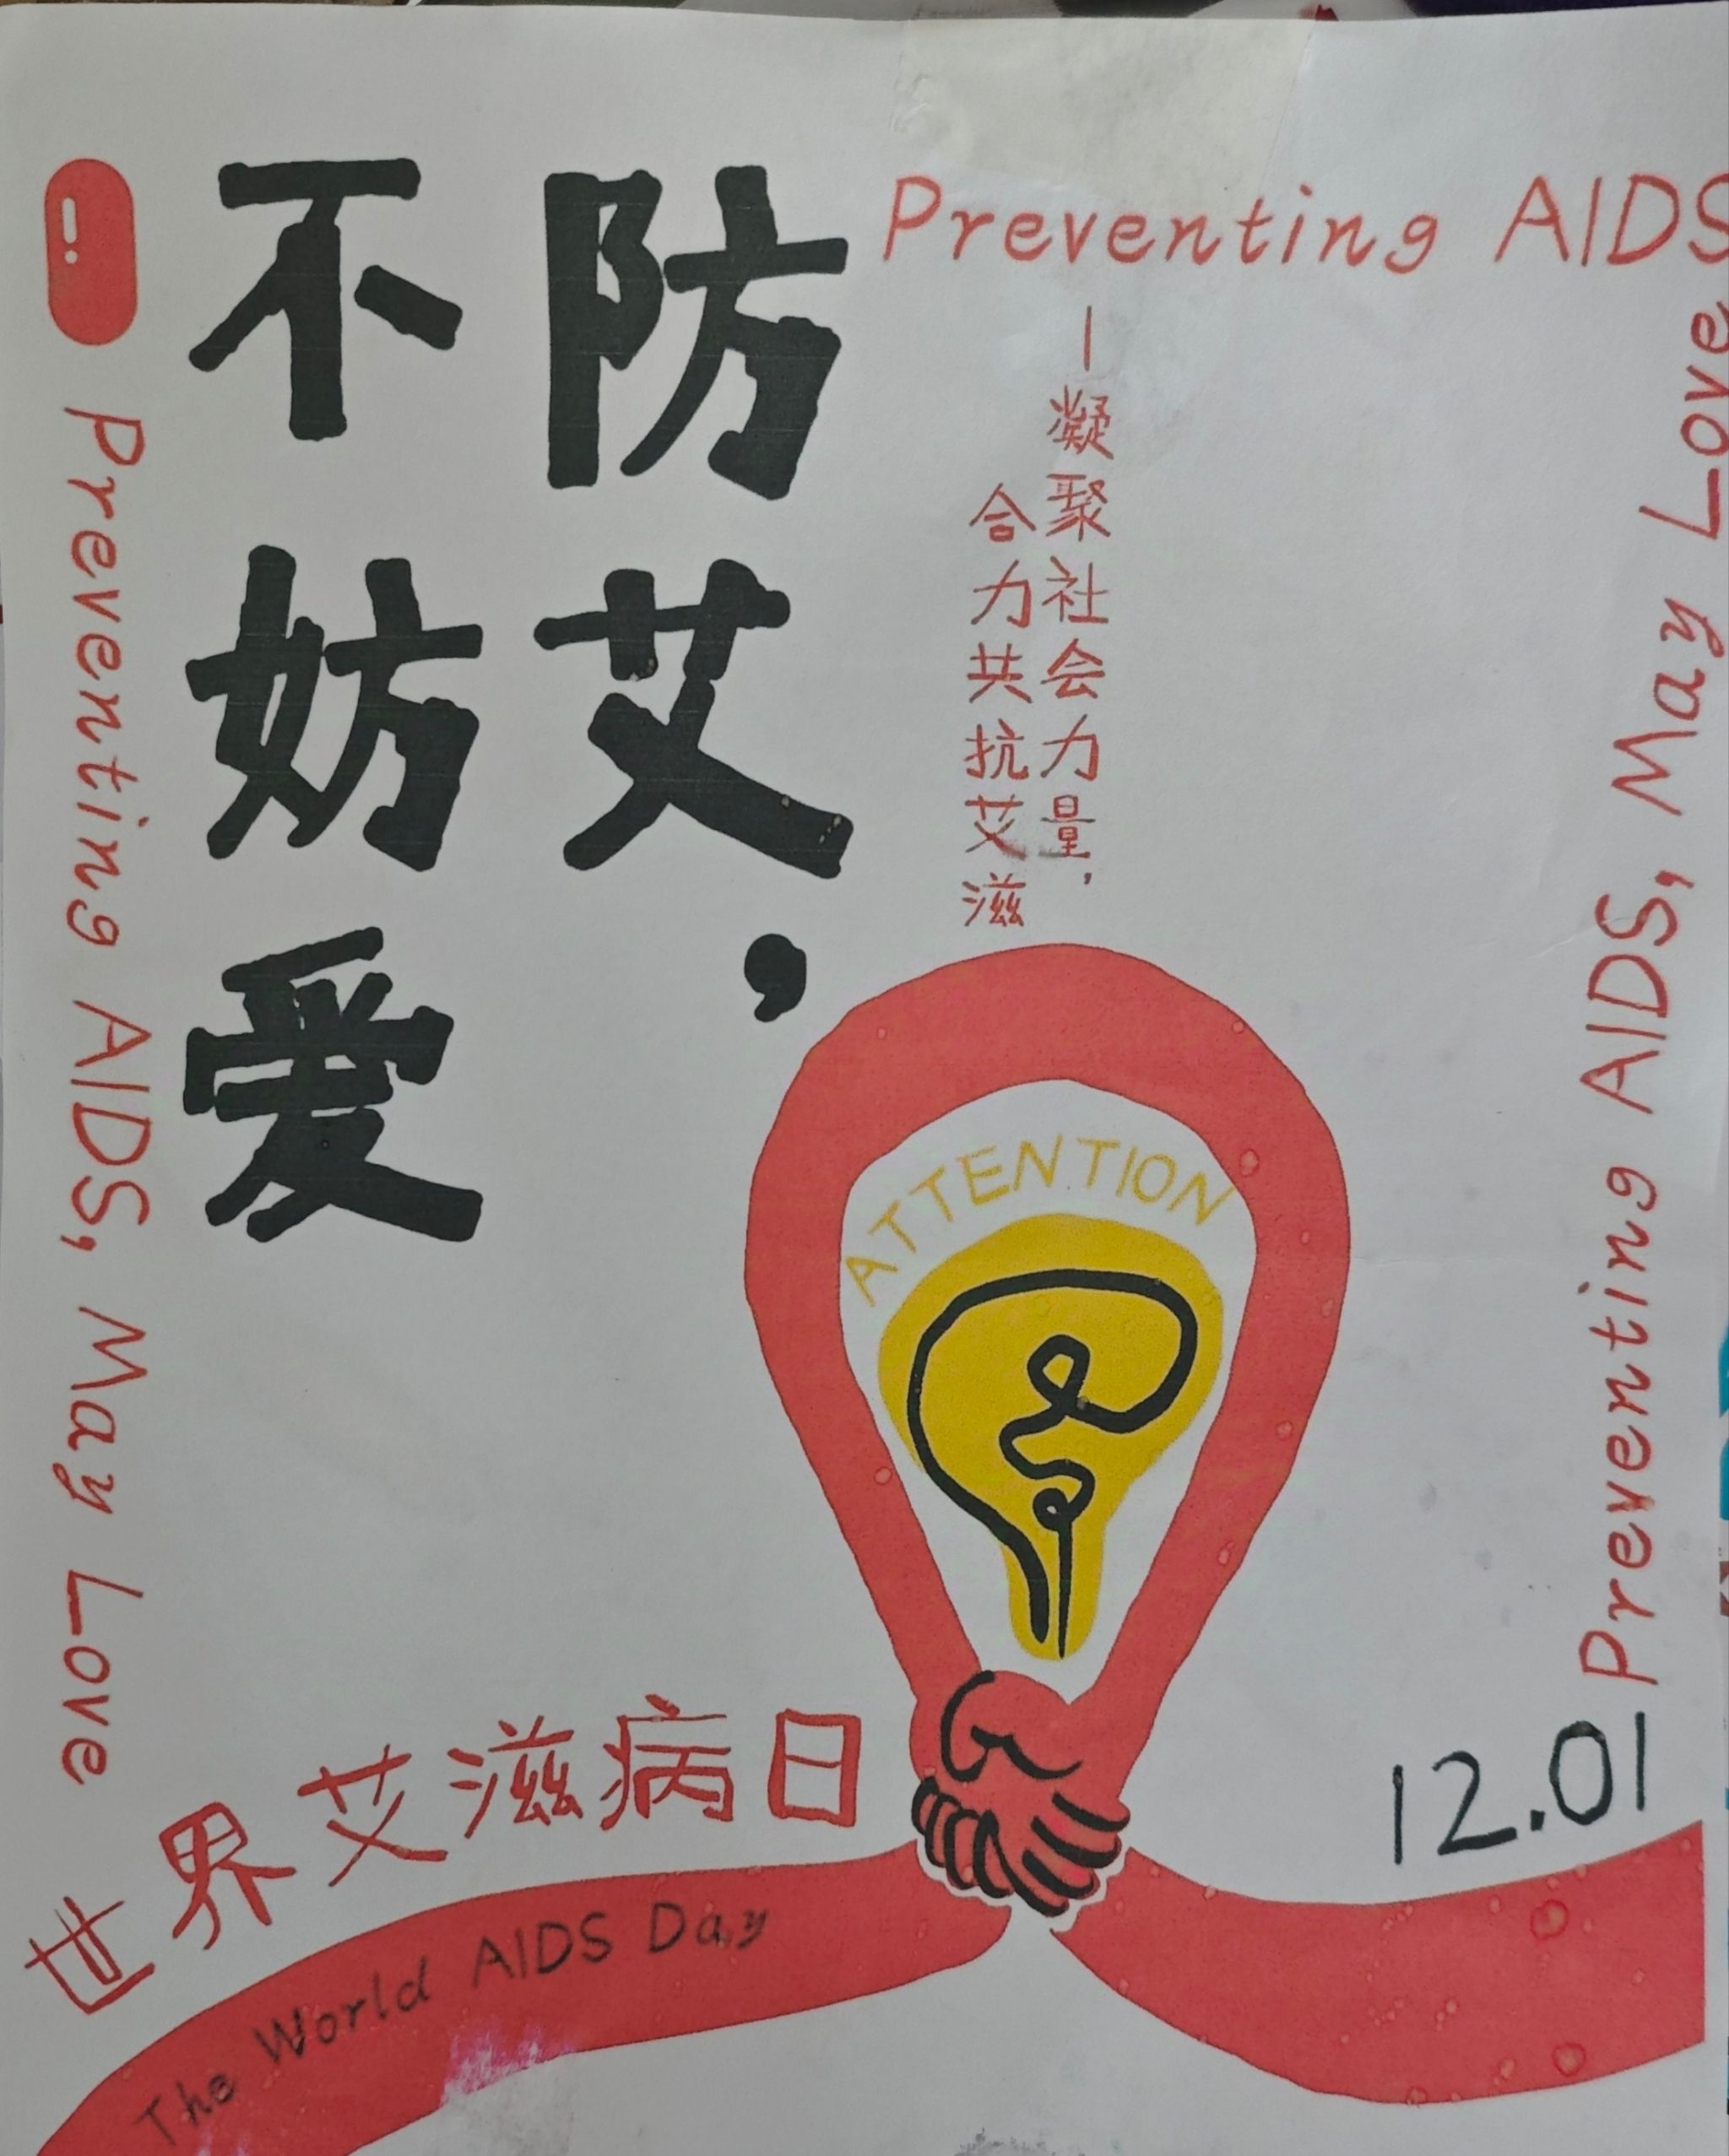 防艾，
不妨爱
Preventing AIDS
凝聚社会力量，
合力共抗艾滋
Preventing AIDS, May Love
Preventing AIDS, May Love
ATTENTION
世界艾滋病日
12.01
The World AIDS Day